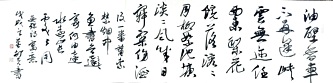 油壁香車
不再逢峽
雲無迹任
西東梨花
院落溶溶
月柳絮池塘
淡淡風幾日
寂寥傷酒
後一番蕭
索禁烟中
魚書欲寄
何由達
水遠山
長處處同
晏殊詩寓意
戊戌年
書